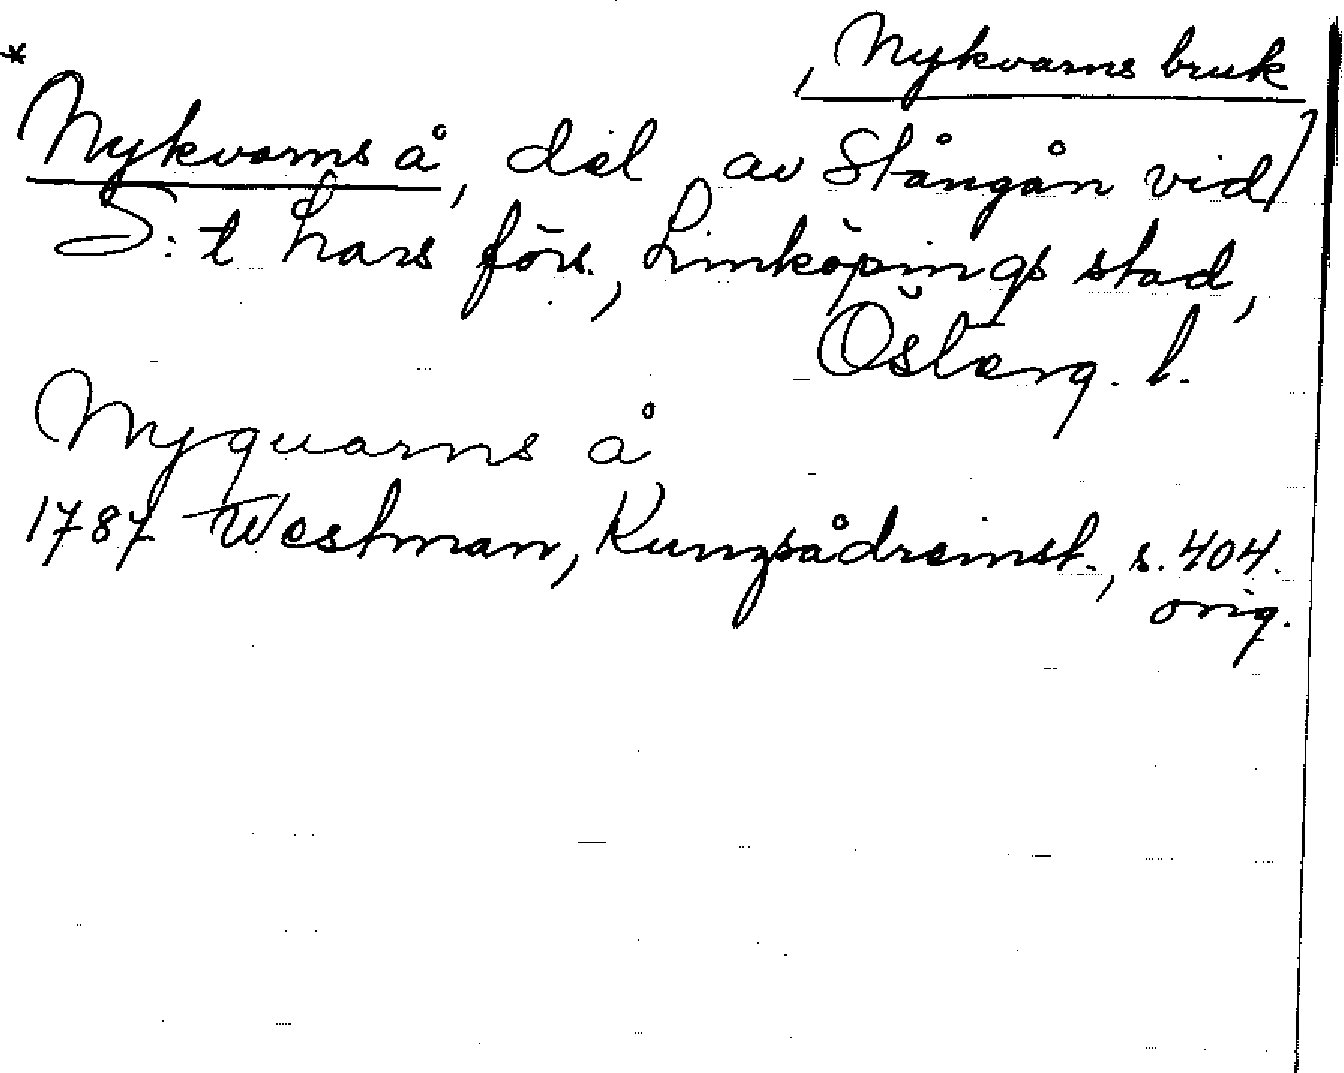 * , Nykvarns bruk
Nykvarns å, del av Stångån vid/
S:t Lars förs., Linköpings stad,
Österg. l.
Nyquarns å
1787 Westman, Kungsådreinst., s. 404.
orig.